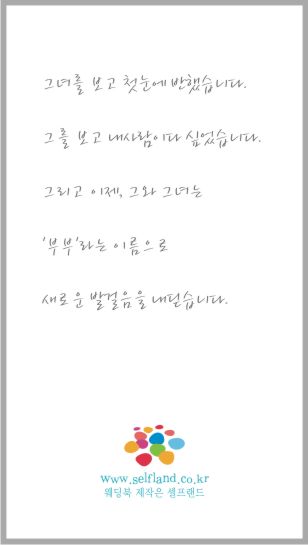 그녀를 보고 첫눈에 반했습니다.
그를 보고 내사람이다 싶었습니다.
그리고 이제, 그와 그녀는
'부부'라는 이름으로
새로운 발걸음을 내딛습니다.
www.selfland.co.kr
웨딩북 제작은 셀프랜드